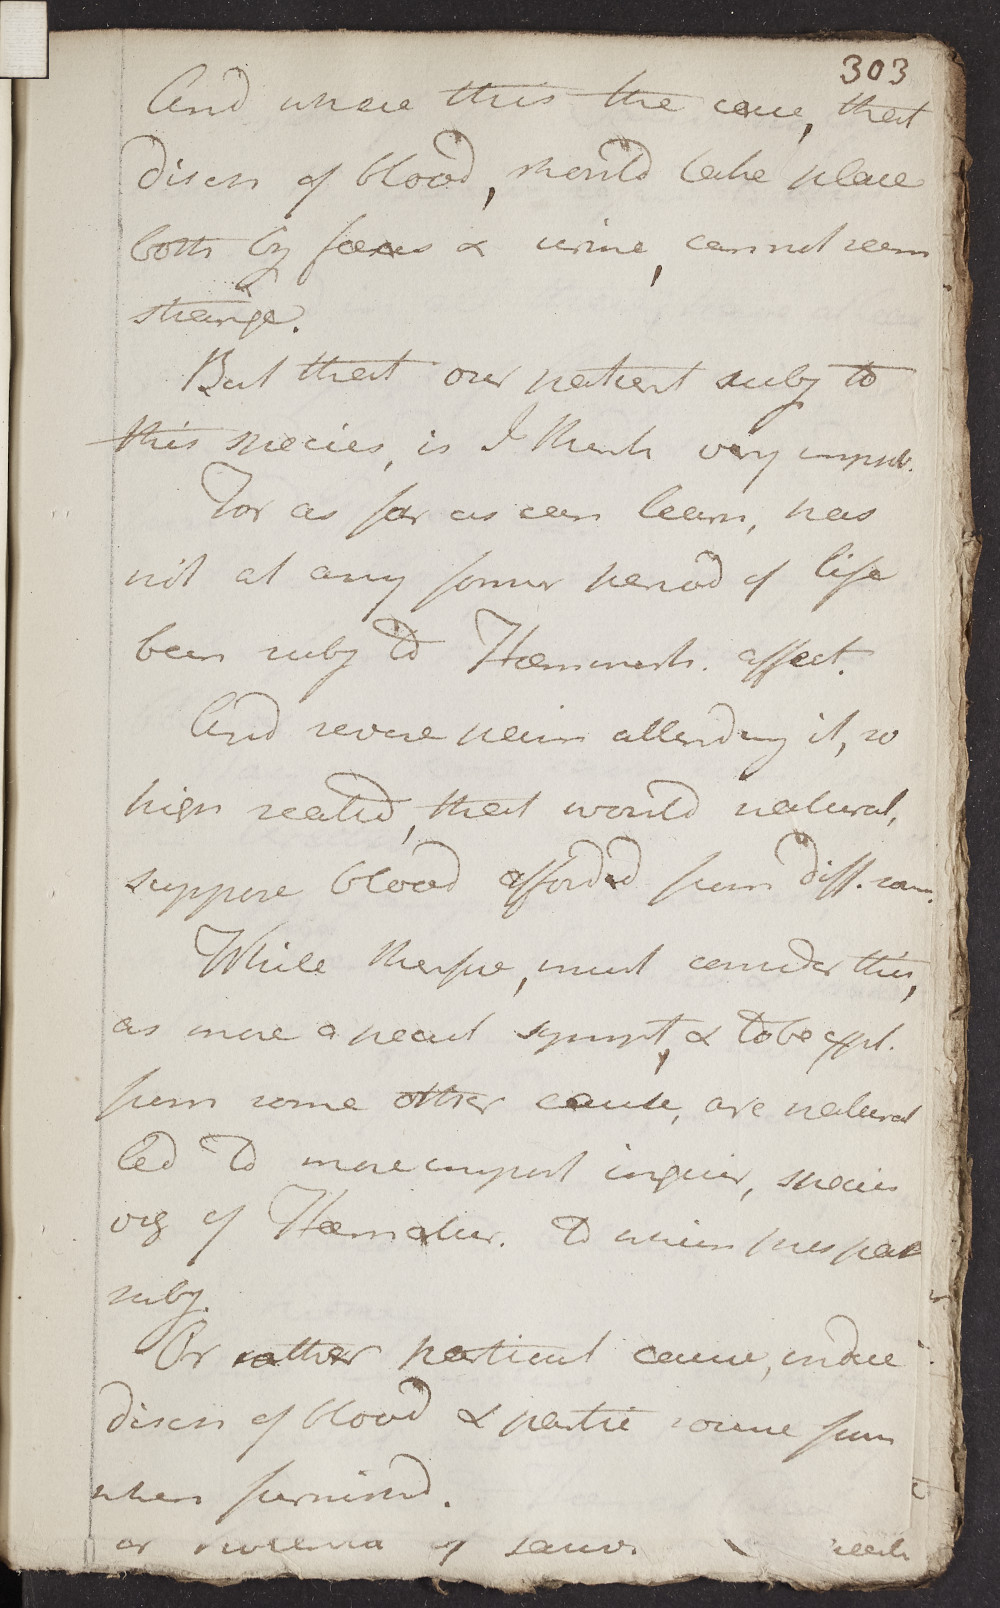 303
And where this the case, that
disch of blood, should take place
both by faeces & urine, cannot seem
strange.
But that our patient subj to
this species, is I think very improb.
For as far as can learn, has
not at any former period of life
been subj to Haemorrh. affect.
And severe pain attending it, so
high seated, that would natural,
suppose blood afforded from diff. sour.
While therfore, must consider this,
as mere a sympt, & to be expl.
from some other cause, are natural
led to more import inquir, species
viz of Haematur. to which pres pat
subj.
Or rather particul cause, induc
disch of blood & partic sourse from
when furnishd.
or of